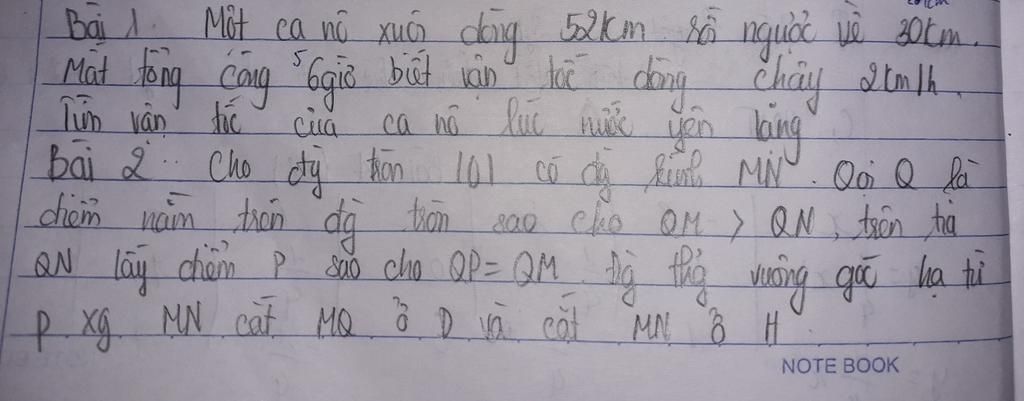 Bài 1. Một ca nô xuôi dòng 52km rồi ngược về 30km.
Mất tổng cộng 5 6giờ biết vận tốc dòng chảy 2km/h.
Tìm vận tốc của ca nô lúc nước yên lặng
Bài 2.. Cho đg tròn (O) có đg kính MN. Gọi Q là
điểm nằm trên đg tròn sao cho QM > QN, trên tia
QN lấy điểm P sao cho QP = QM. Đg thg vuông góc hạ từ
P xg MN cắt MQ ở D và cắt MN ở H
NOTE BOOK